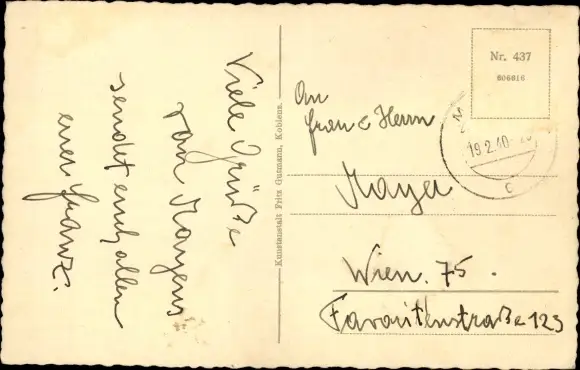 Viele Grüße
von Mayens
sendet euch allen
euer Franz.
Kunstanstalt Fritz Gutmann, Koblenz.
Nr. 437
606616
19.2.40
c
An
Frau & Herrn
Mayer
Wien. 75.
Favoritenstraße 123